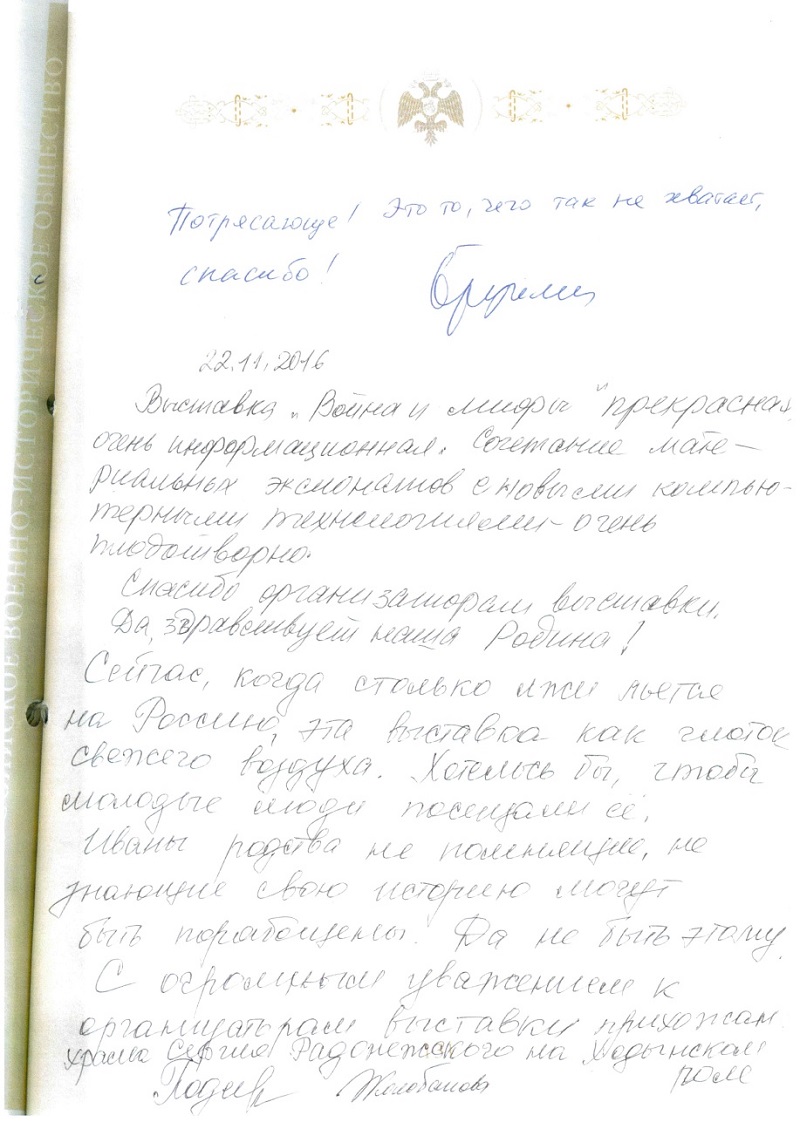 ВОЕННО-ИСТОРИЧЕСКОЕ ОБЩЕСТВО
Потрясающе! Это то, чего так не хватает,
спасибо!
22.11.2016
Выставка „Война и мифы" прекрасная,
очень информационная. Сочетание мате-
риальных экспонатов с новыми компью-
терными технологиями – очень
плодотворно.
Спасибо организаторам выставки.
Да здравствует наша Родина!
Сейчас, когда столько лжи льется
на Россию, эта выставка как глоток
свежего воздуха. Хотелось бы, чтобы
молодые люди посещали её.
Иваны родства не помнящие, не
знающие свою историю могут
быть порабощены. Да не быть этому.
С огромным уважением к
организаторам выставки прихожан
храма Сергия Радонежского на Ходынском
поле
Желобанова